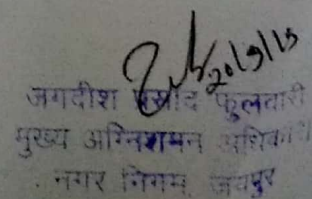 20/9/13
जगदीश प्रसाद फुलवारी
मुख्य अग्निशमन अधिकारी
नगर निगम, जयपुर